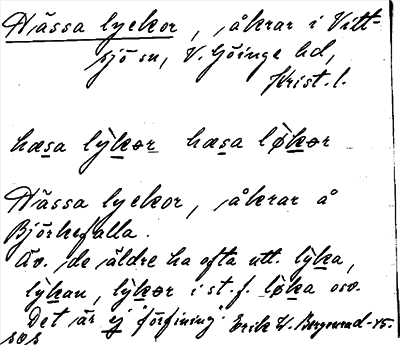 Hässa lyckor, åkrar i Vitt-
sjö sn, V. Göinge hd,
Krist. l.
hæsa lỳkər hæsa lø̀kər
Hässa lyckor, åkrar å
Björkefalla.
Äv. de äldre ha ofta utt. lỳka,
lỳkan, lỳkər i st. f. lø̀ka osv.
Det är ej "förfining". Erik W. Bergstrand -45.